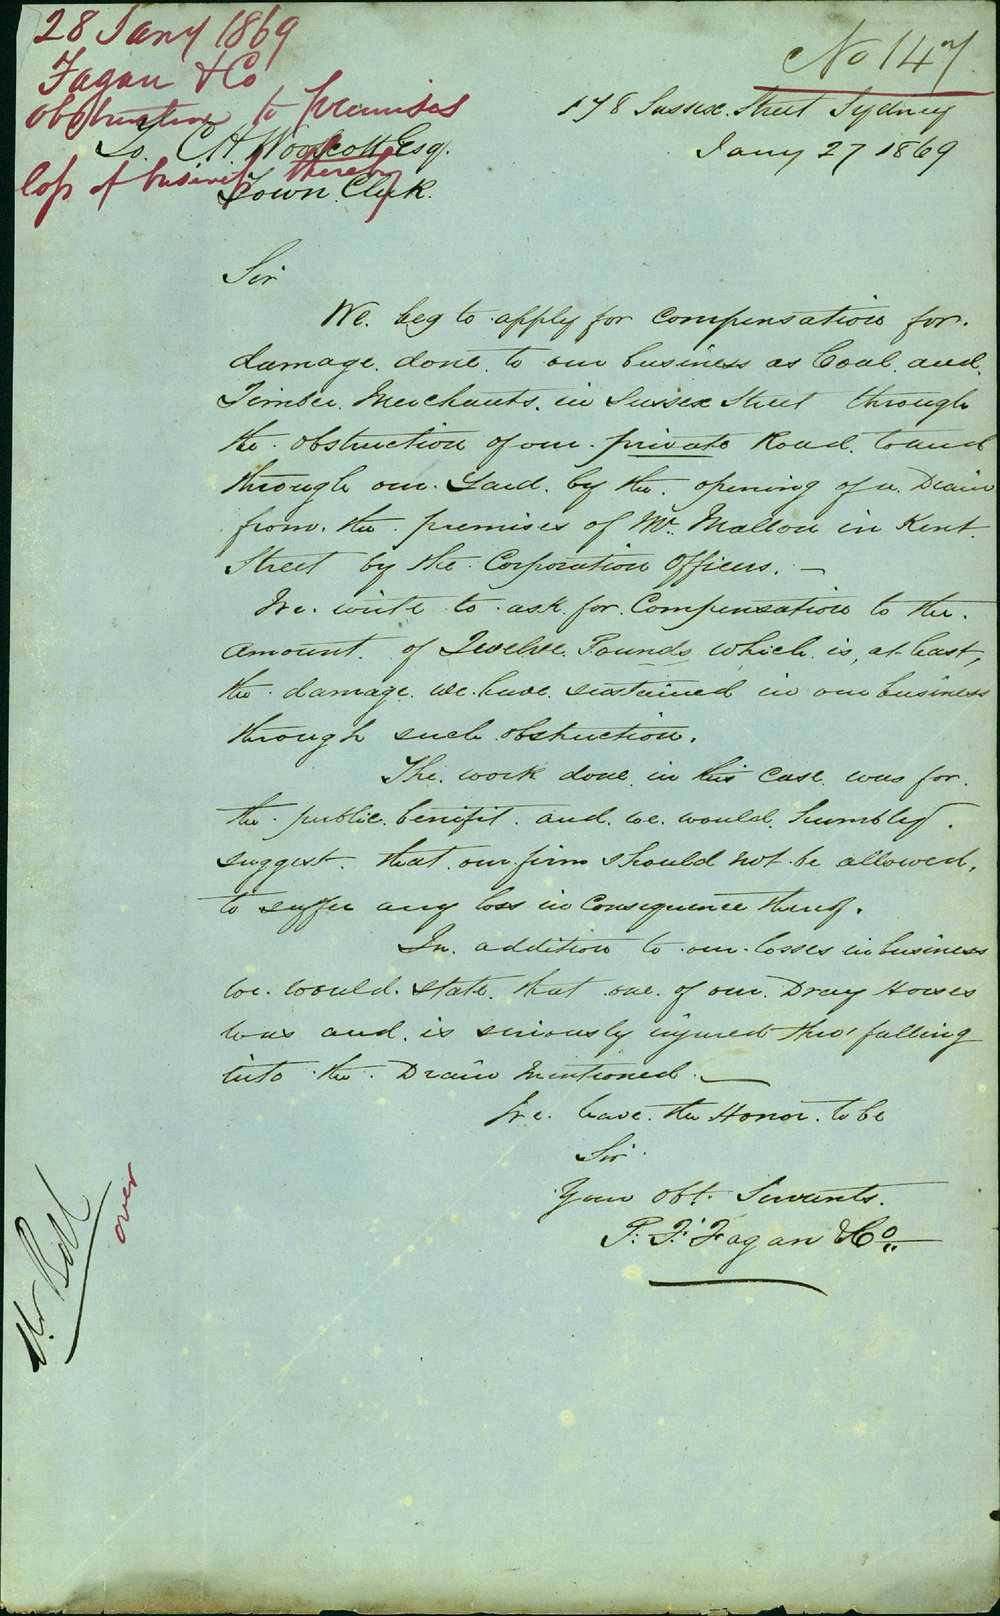 28 Jany 1869
Fagan & Co
obstruction to premises
loss of business thereby
No 147
178 Sussex Street Sydney
Jany 27 1869
To. C.H. Woolcott Esq.
Town Clerk.
Sir
We. beg to apply for compensation for.
damage. done. to our business as Coal. and.
Timber. Merchants. in Sussex Street through
the obstruction of our. private Road. to and
through our. Yard. by the. opening of a. Drain
from. the. premises of Mr. Mallon in Kent.
Street by the. Corporation Officers. —
We. write to ask. for. Compensation to the.
amount. of Twelve. Pounds which. is, at least,
the damage. we. have. sustained in our business
through such obstruction.
The. work done in this case was for.
the. public. benifit. and. we. would. humbly.
suggest. that our firm should not be allowed.
to suffer any loss in consequence thereof.
In. addition to our. losses in business
we. would. state. that one. of our. Dray Horses
was and. is seriously injured thro' falling
into the. Drain mentioned. —
We. have. the Honor. to be
Sir.
Your Obt. Servants.
P. F. Fagan & Co
Mr Bell
over